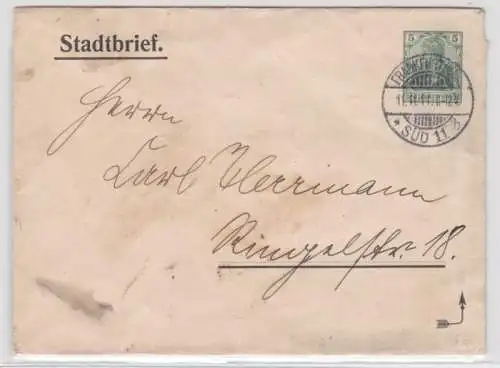 Stadtbrief.
5 5
FRANKFURT
11.11.11.11-12V
* SÜD 11 b
Herrn
Carl Herrmann
Ringelstr. 18.